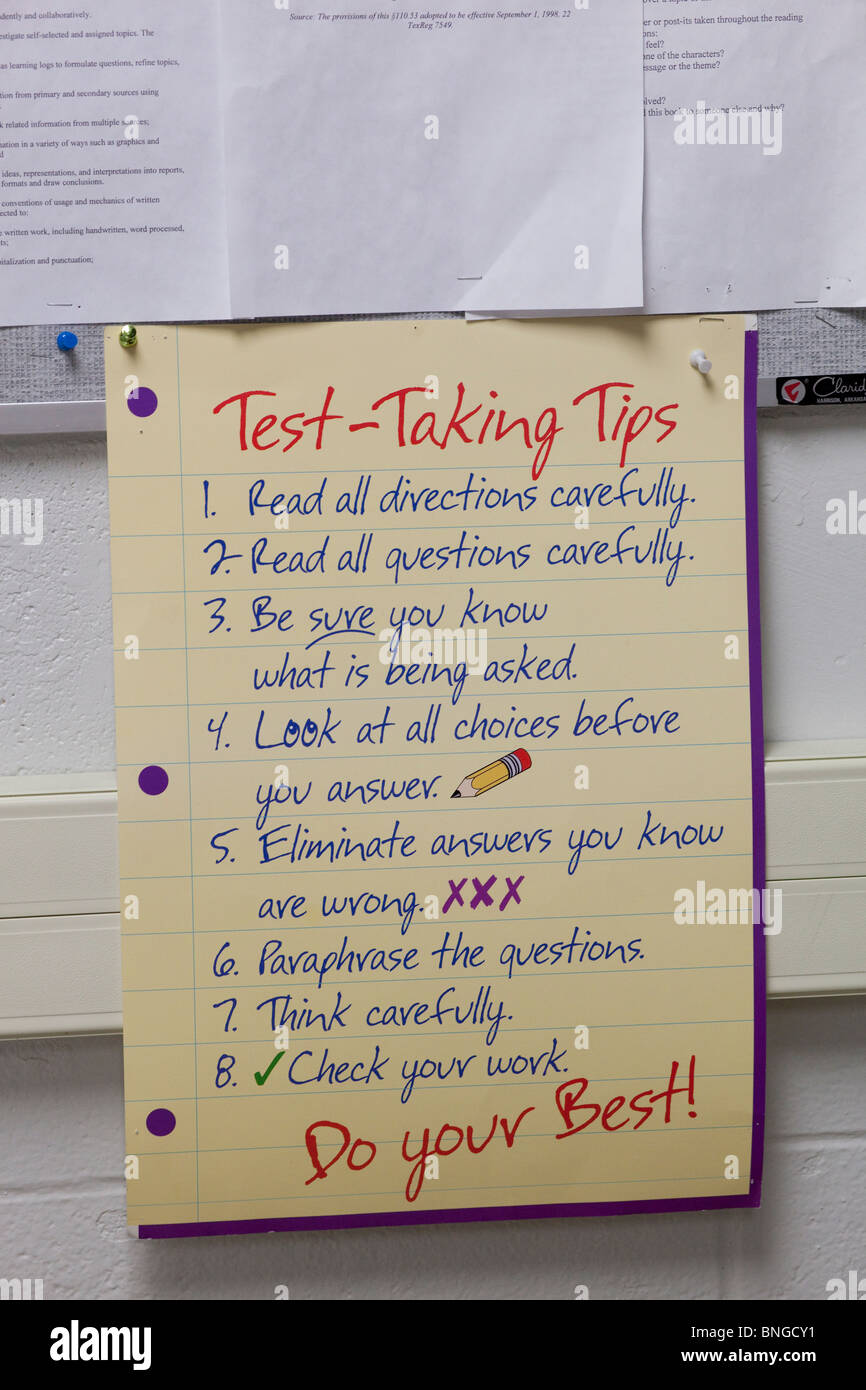 dently and collaboratively.
estigate self-selected and assigned topics. The
as learning logs to formulate questions, refine topics,
tion from primary and secondary sources using
k related information from multiple sources;
nation in a variety of ways such as graphics and
d
ideas, representations, and interpretations into reports,
formats and draw conclusions.
conventions of usage and mechanics of written
ected to:
e written work, including handwritten, word processed,
ts;
pitalization and punctuation;
Source: The provisions of this §110.53 adopted to be effective September 1, 1998, 22
TexReg 7549.
er or post-its taken throughout the reading
ons:
feel?
one of the characters?
essage or the theme?
olved?
d this book to someone else and why?
Clarid
HARRISON, ARKANSA
Test-Taking Tips
1. Read all directions carefully.
2. Read all questions carefully.
3. Be sure you know
what is being asked.
4. Look at all choices before
you answer.
5. Eliminate answers you know
are wrong. XXX
6. Paraphrase the questions.
7. Think carefully.
8. ✓ Check your work.
Do your Best!
alamy
alamy
Image ID: BNGCY1
www.alamy.com